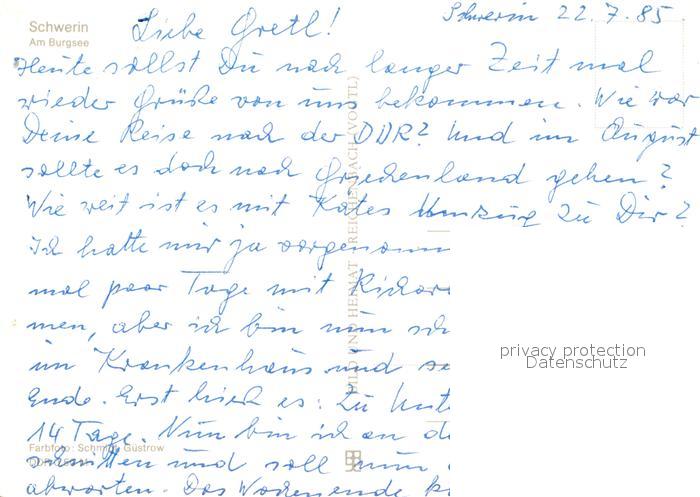 Schwerin
Am Burgsee
Schwerin 22.7.85
Liebe Gretl!
Heute sollst Du nach langer Zeit mal
wieder Grüße von uns bekommen. Wie war
Deine Reise nach der DDR? Und im August
sollte es doch nach Griechenland gehen?
Wie weit ist es mit Kates Umzug zu Dir?
Ich hatte mir ja vorgenomm
mal paar Tage mit Richar
men, aber ich bin nun sch
im Krankenhaus und
Ende. Erst hieß es: Zu
14 Tage. Nun bin ich an d
schnitten und soll nun
abwarten. Das Wochenende k
Farbfoto: Schmidt, Güstrow
BILD UND HEIMAT REICHENBACH (VOGTL)
privacy protection
Datenschutz